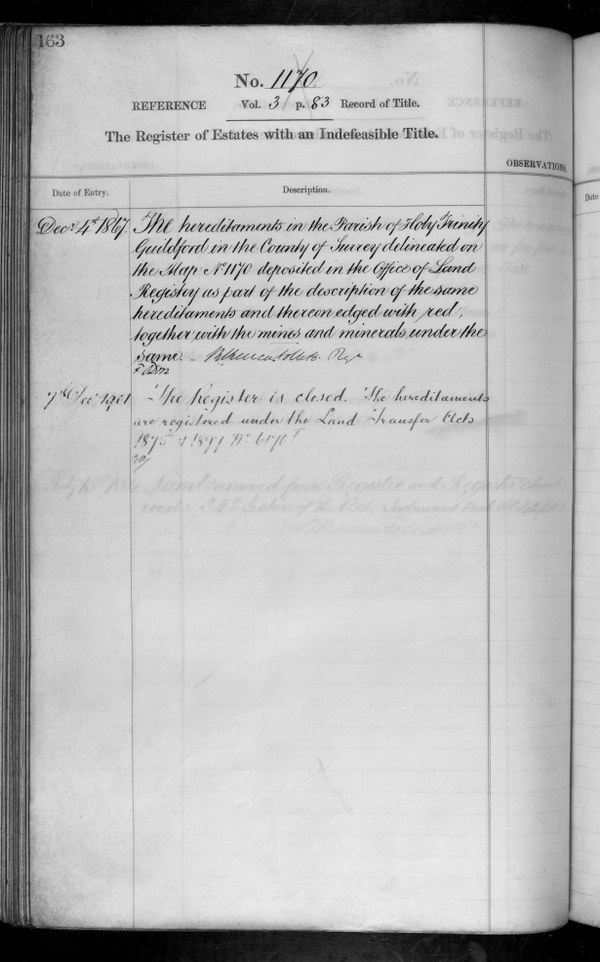 163
No. 1170.
REFERENCE Vol. 3 p. 83 Record of Title.
The Register of Estates with an Indefeasible Title.
OBSERVATIONS.
Date of Entry.
Description.
Date
Decr 4th 1867.
The hereditaments in the Parish of Holy Trinity
Guildford in the County of Surrey delineated on
the Map No 1170 deposited in the Office of Land
Registry as part of the description of the same
hereditaments and thereon edged with red,
together with the mines and minerals under the
same. Regr
7th Dec 1901
The Register is closed. The hereditaments
are registered under the Land Transfer Acts
1875 & 1897 No
Land removed from Register and